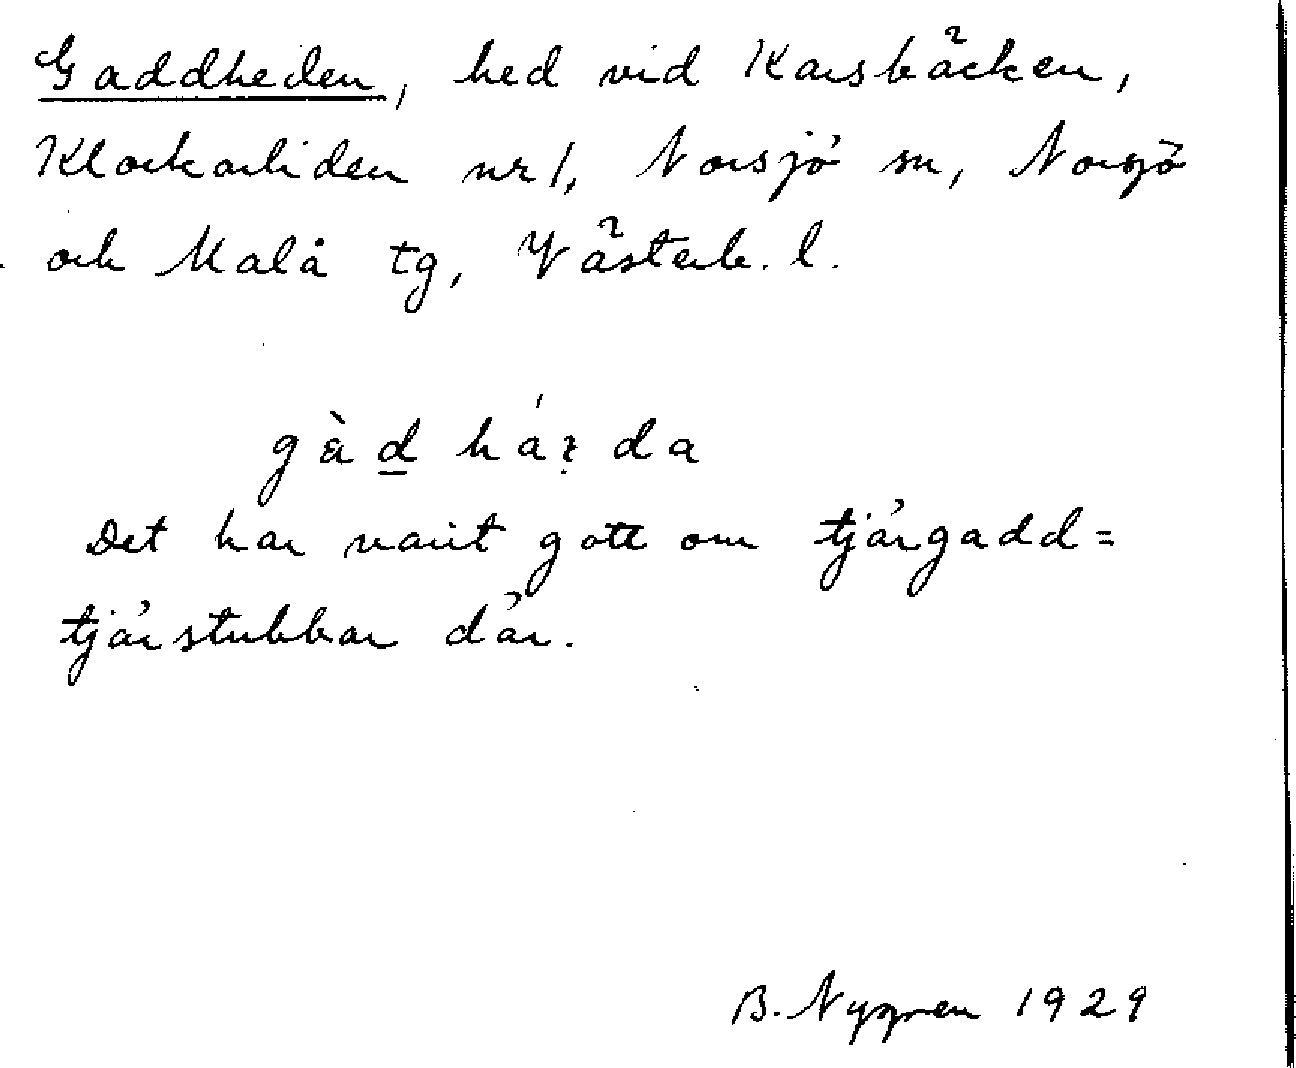 Gaddheden, hed vid Karsbäcken,
Klockarliden nr 1, Norsjö sn, Norsjö
och Malå tg, Västerb. l.
Det har varit gott om tjärgadd=
tjärstubbar där.
B. Nygren 1929